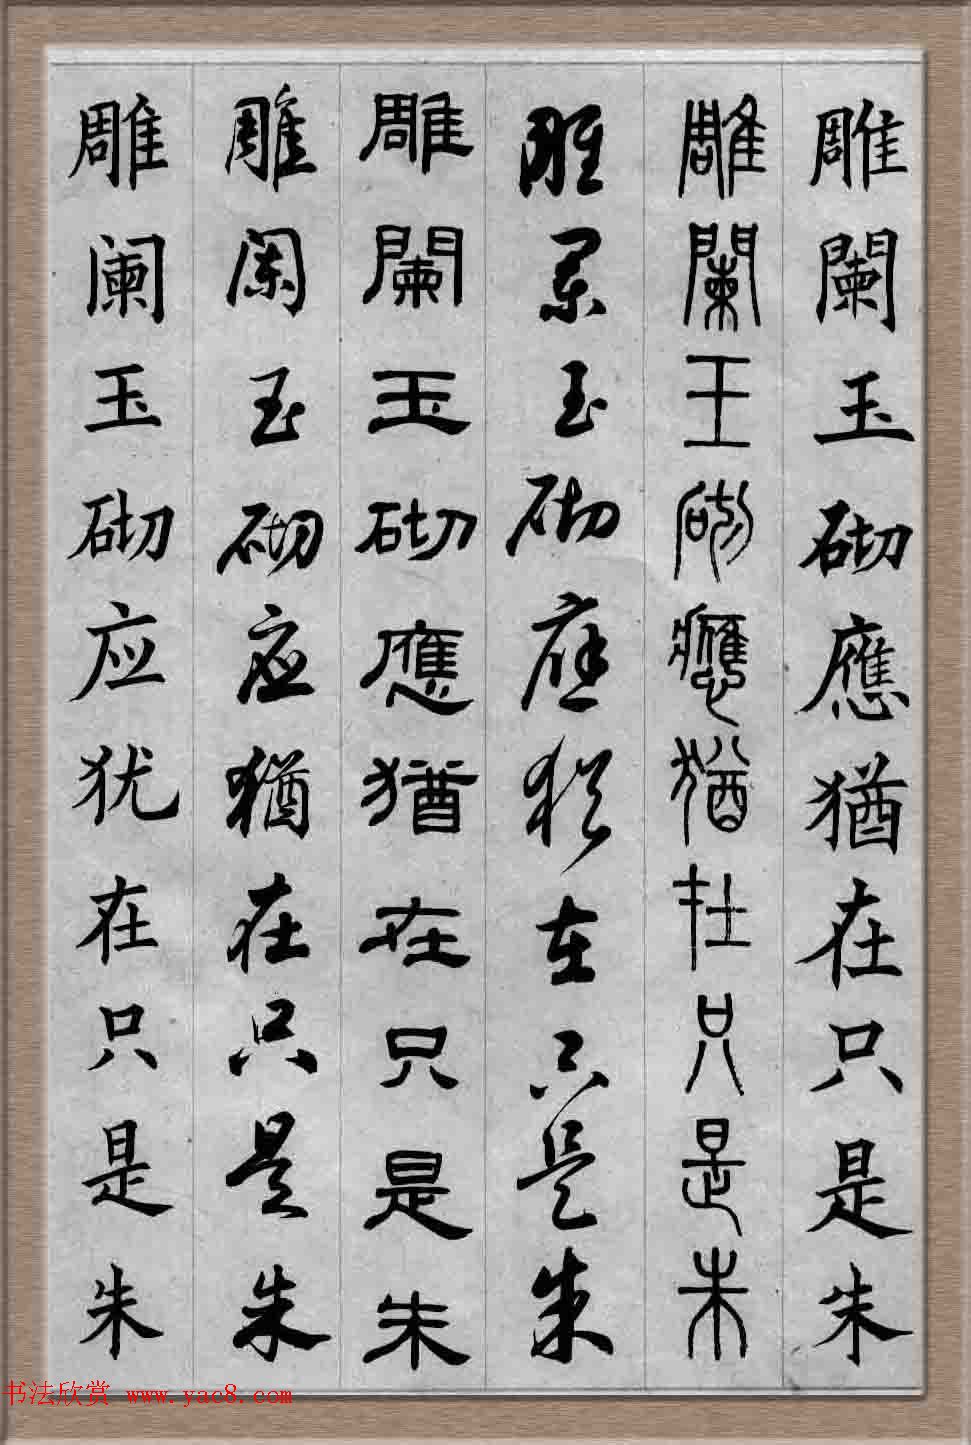 雕闌玉砌應猶在只是朱
雕闌玉砌應猶在只是朱
雕阑玉砌应猶在只是朱
雕闌玉砌應猶在只是朱
雕阑玉砌应猶在只是朱
雕阑玉砌应犹在只是朱
书法欣赏 www.yac8.com